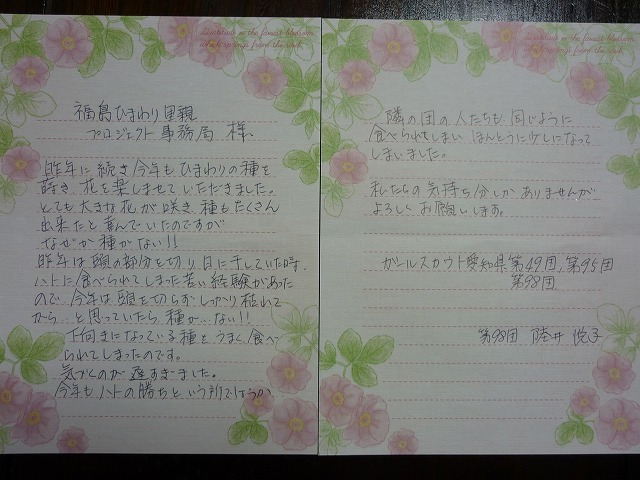 Gratitude is the fairest blossom
which springs from the soul.
福島ひまわり里親
プロジェクト事務局 様、
昨年に続き今年もひまわりの種を
蒔き、花を楽しませていただきました。
とても大きな花が咲き、種もたくさん
出来たと喜んでいたのですが
なぜか種がない!!
昨年は頭の部分を切り、日に干していた時、
ハトに食べられてしまった苦い経験があった
ので、今年は頭を切らずしっかり枯れて
から…と思っていたら、種が…ない!!
下向きになっている種を、うまく食べ
られてしまったのです。
気づくのが遅すぎました。
今年もハトの勝ちという所でしょうか
Gratitude is the fairest blossom
which springs from the soul.
隣の団の人たちも、同じように
食べられてしまい ほんとうに少しになって
しまいました。
私たちの気持ち分しかありませんが
よろしくお願いします。
ガールスカウト愛知県第49団、第95団
第98団
第98団 陸井 悦子